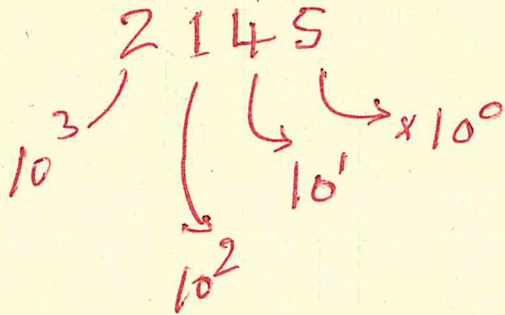 2 1 4 5
10³
10²
10¹
×10⁰